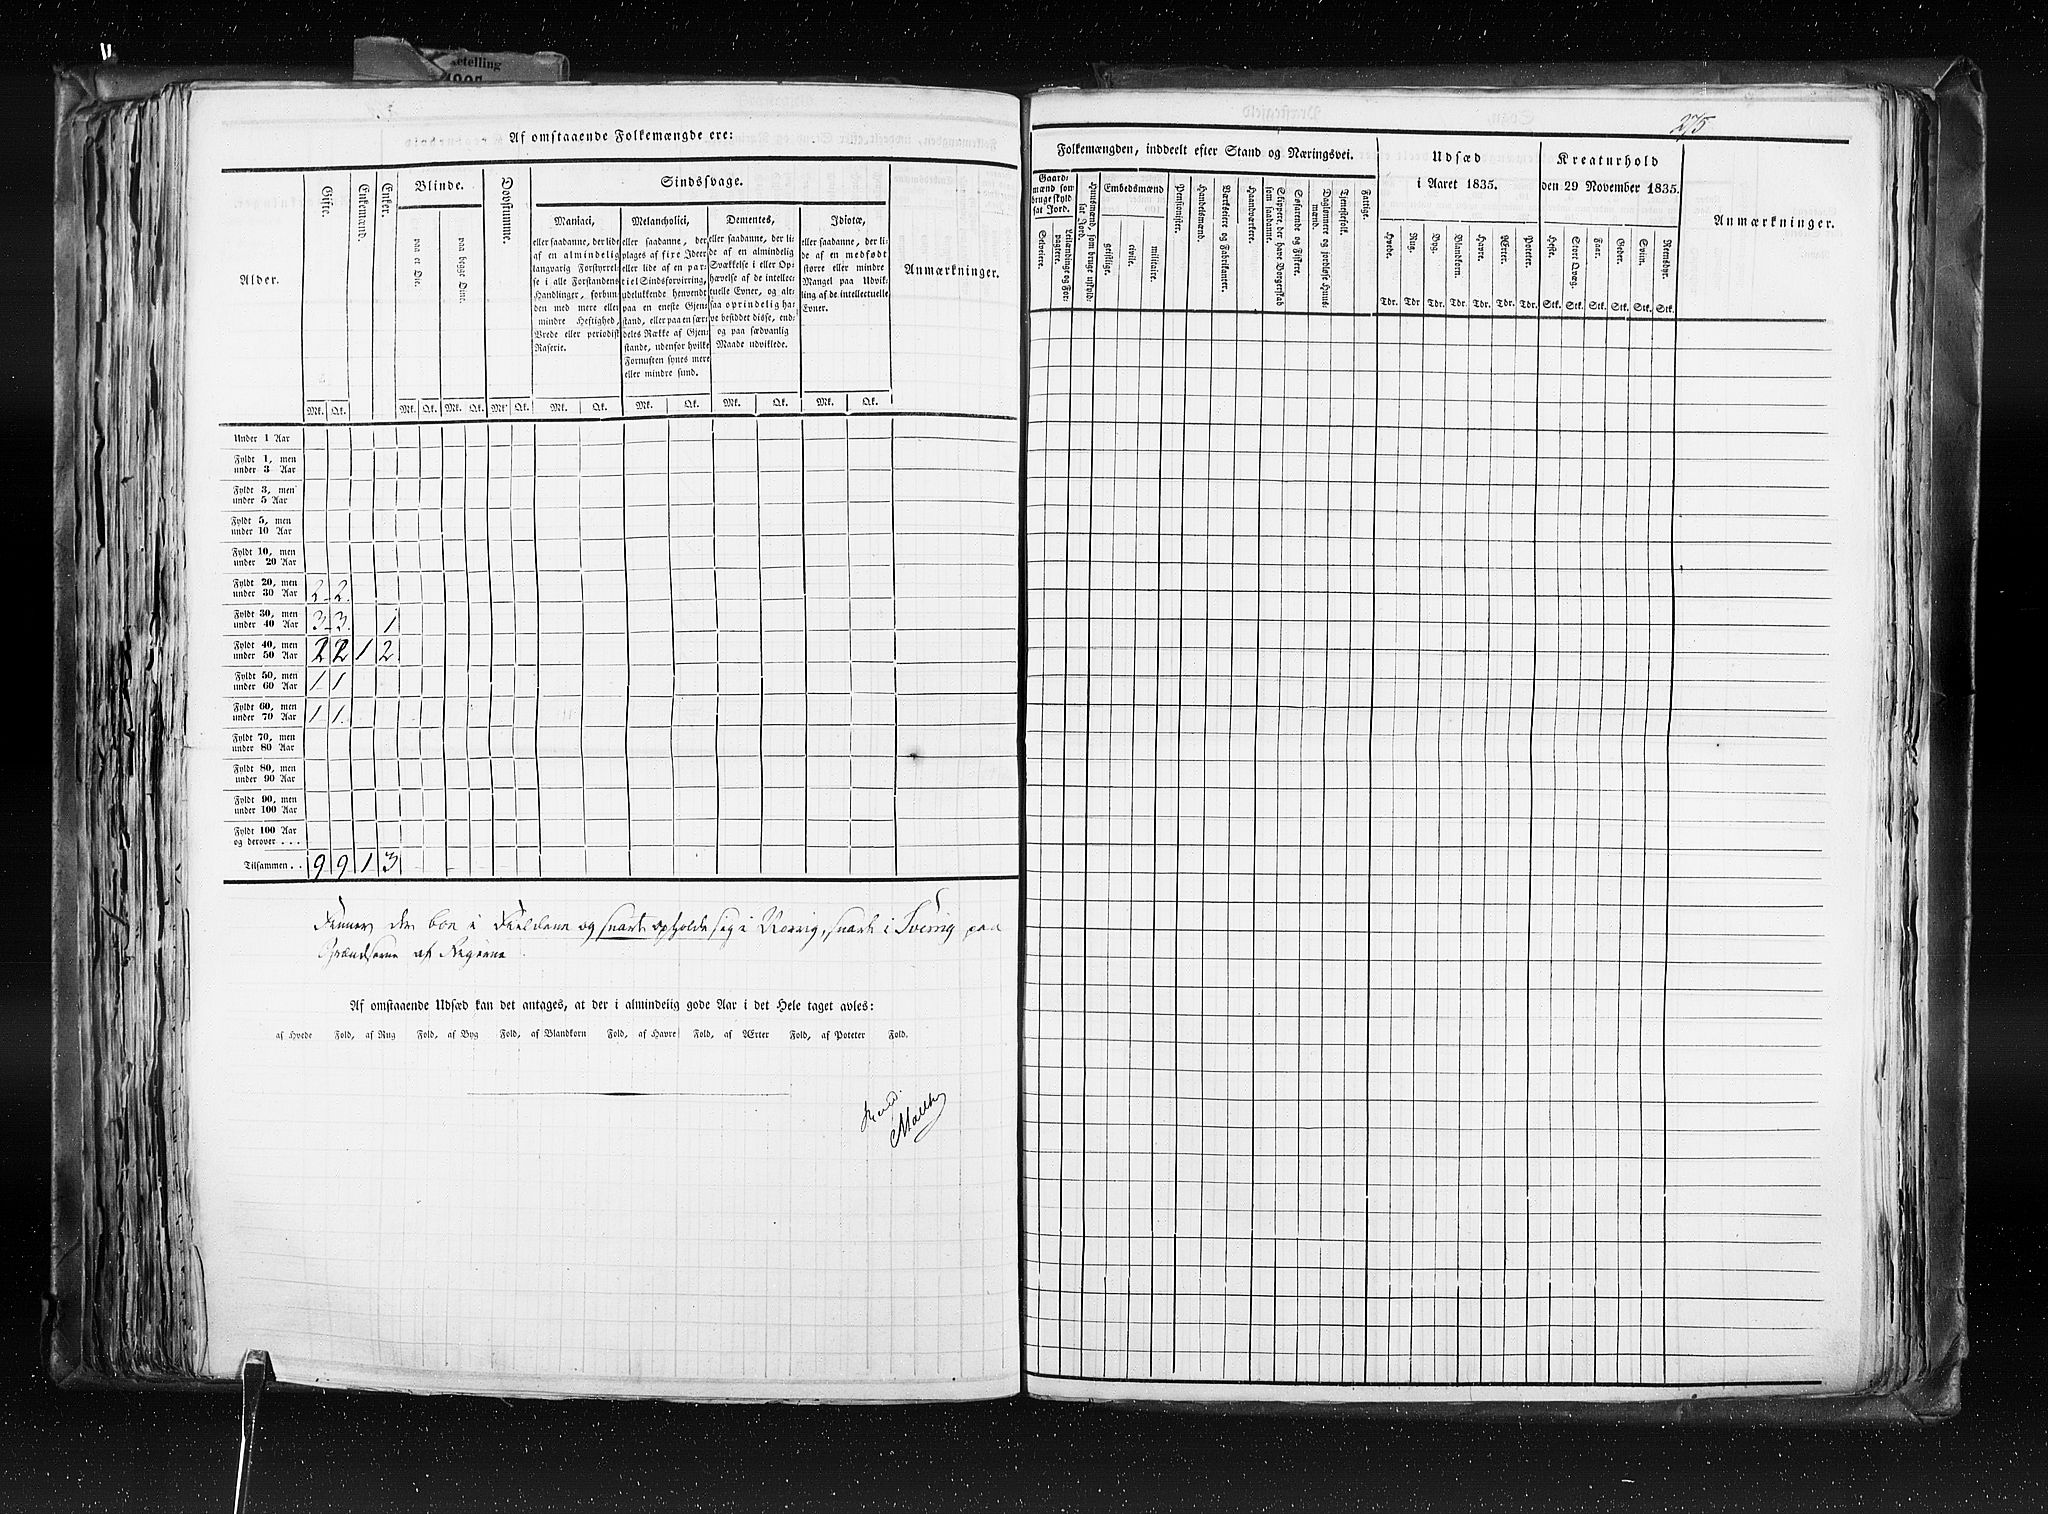 ketelling
Af omstaaende Folkemængde ere:
Alder.
Gifte.
Enkemænd.
Enker.
Blinde.
paa et Øie.
paa begge Øine.
Døvstumme.
Sindssvage.
Maniaci,
eller saadanne, der lide
af en almindelig
langvarig Forstyrrel-
se i alle Forstandens
Handlinger, forbun-
den med mere eller
mindre Heftighed,
Vrede eller periodisk
Raserie.
Melancholici,
eller saadanne, der
plages af fixe Ideer
eller lide af en par-
tiel Sindsforvirring,
udelukkende henvendt
paa en eneste Gjen-
stand, eller paa en sær-
deles Række af Gjen-
stande, udenfor hvilke
Fornuften synes mere
eller mindre sund.
Dementes,
eller saadanne, der li-
de af en almindelig
Svækkelse i eller Op-
hævelse af de intellec-
tuelle Evner, og alt-
saa oprindelig ha-
ve besiddet disse, end-
og paa sædvanlig
Maade udviklede.
Idiotæ,
eller saadanne, der li-
de af en medfødt
større eller mindre
Mangel paa Udvik-
ling af de intellectuelle
Evner.
Anmærkninger.
Mk. Qk. Mk. Qk. Mk. Qk. Mk. Qk. Mk. Qk. Mk. Qk. Mk. Qk. Mk. Qk.
Under 1 Aar
Fyldt 1, men
under 3 Aar
Fyldt 3, men
under 5 Aar
Fyldt 5, men
under 10 Aar
Fyldt 10, men
under 20 Aar
Fyldt 20, men
under 30 Aar 2 2
Fyldt 30, men
under 40 Aar 3 3 1
Fyldt 40, men
under 50 Aar 2 2 1 2
Fyldt 50, men
under 60 Aar 1 1
Fyldt 60, men
under 70 Aar 1 1
Fyldt 70, men
under 80 Aar
Fyldt 80, men
under 90 Aar
Fyldt 90, men
under 100 Aar
Fyldt 100 Aar
og derover . . .
Tilsammen . . 9 9 1 3
Finner der boe i Fieldene og snart opholde sig i Norrig, snart i Sverrig paa
Grændserne af Rigerne
Af omstaaende Udsæd kan det antages, at der i almindelig gode Aar i det Hele taget avles:
af Hvede Fold, af Rug Fold, af Byg Fold, af Blandkorn Fold, af Havre Fold, af Ærter Fold, af Poteter Fold.
275
Folkemængden, inddeelt efter Stand og Næringsvei.
Gaard-
mænd som
bruge skyld-
sat Jord.
Selveiere.
Leilændinge og For-
pagtere.
Huusmænd, som bruge uskyld-
sat Jord.
Embedsmænd
geistlige.
civile.
militaire.
Pensionister.
Handelsmænd.
Værkseiere og Fabrikanter.
Haandværkere.
Skippere, der have Borgerskab
som saadanne.
Søfarende og Fiskere.
Daglønnere og jordløse Huus-
mænd.
Tjenestefolk.
Fattige.
Udsæd
i Aaret 1835.
Hvede.
Rug.
Byg.
Blandkorn.
Havre.
Ærter.
Poteter.
Tdr. Tdr Tdr. Tdr. Tdr. Tdr. Tdr.
Kreaturhold
den 29 November 1835.
Heste.
Stort Qvæg.
Faar.
Geder.
Sviin.
Rensdyr.
Stk. Stk. Stk. Stk. Stk. Stk.
Anmærkninger.